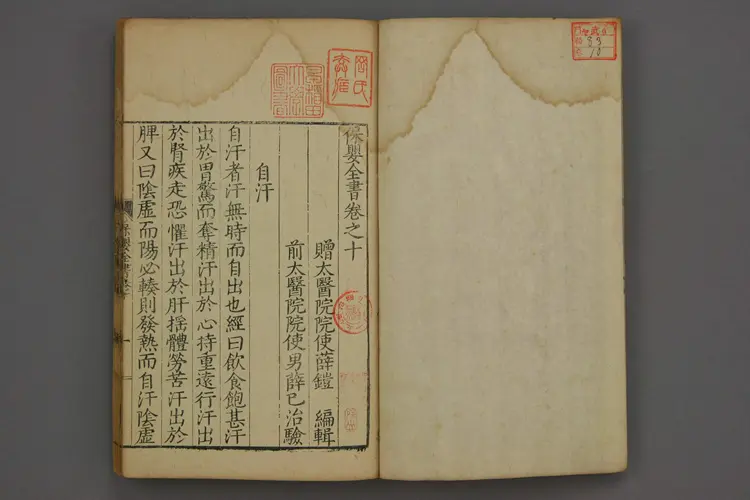 保嬰全書卷之十
贈太醫院院使薛鎧 編輯
前太醫院院使男薛己治驗
自汗
自汗者汗無時而自出也經曰飲食飽甚汗
出於胃驚而奪精汗出於心持重遠行汗出
於腎疾走恐懼汗出於肝揺體勞苦汗出於
脾又曰陰虛而陽必輳則發熱而自汗陰虛